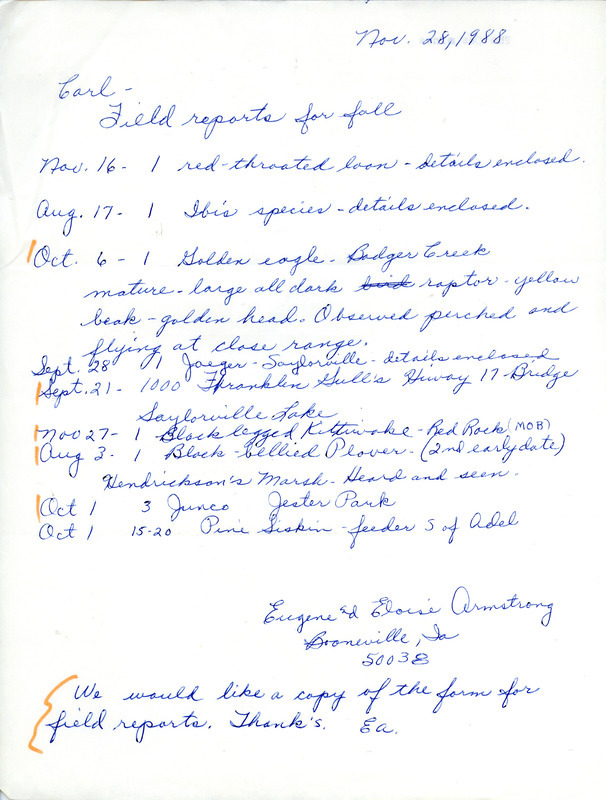 Nov. 28, 1988
Carl -
Field reports for fall
Nov. 16 - 1 red-throated loon - details enclosed.
Aug. 17 - 1 Ibis species - details enclosed.
Oct. 6 - 1 Golden eagle - Badger Creek
mature - large all dark bird raptor - yellow
beak - golden head. Observed perched and
flying at close range.
Sept. 28 1 Jaeger - Saylorville - details enclosed
Sept. 21 - 1000 Franklin Gull's Hiway 17 - Bridge
Saylorville Lake
Nov 27 - 1 Black legged Kittiwake - Red Rock (MOB)
Aug 3 - 1 Black-bellied Plover - (2nd early date)
Hendrickson's Marsh - Heard and seen.
Oct 1 3 Junco Jester Park
Oct 1 15-20 Pine Siskin - feeder S of Adel
Eugene and Eloise Armstrong
Booneville, Ia
50038
We would like a copy of the form for
field reports. Thank's. Ea.